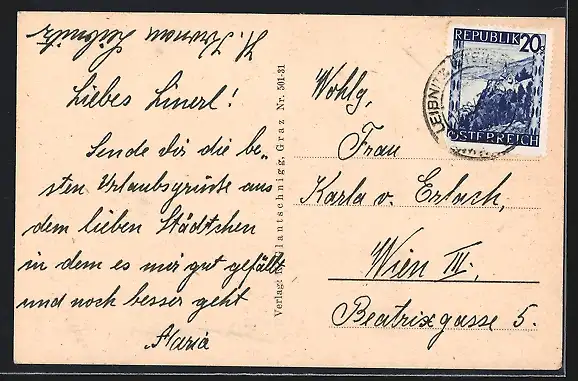 Liebes Linerl!
Sende dir die be-
sten Urlaubsgrüße aus
dem lieben Städtchen
in dem es mir gut gefällt
und noch besser geht
Maria
Leibnitz
Verlag: Schlantschnigg, Graz Nr. 501-31
REPUBLIK 20g
ÖSTERREICH
LEIBNITZ
Wohlg,
Frau
Karla v. Erlach,
Wien III,
Beatrixgasse 5.